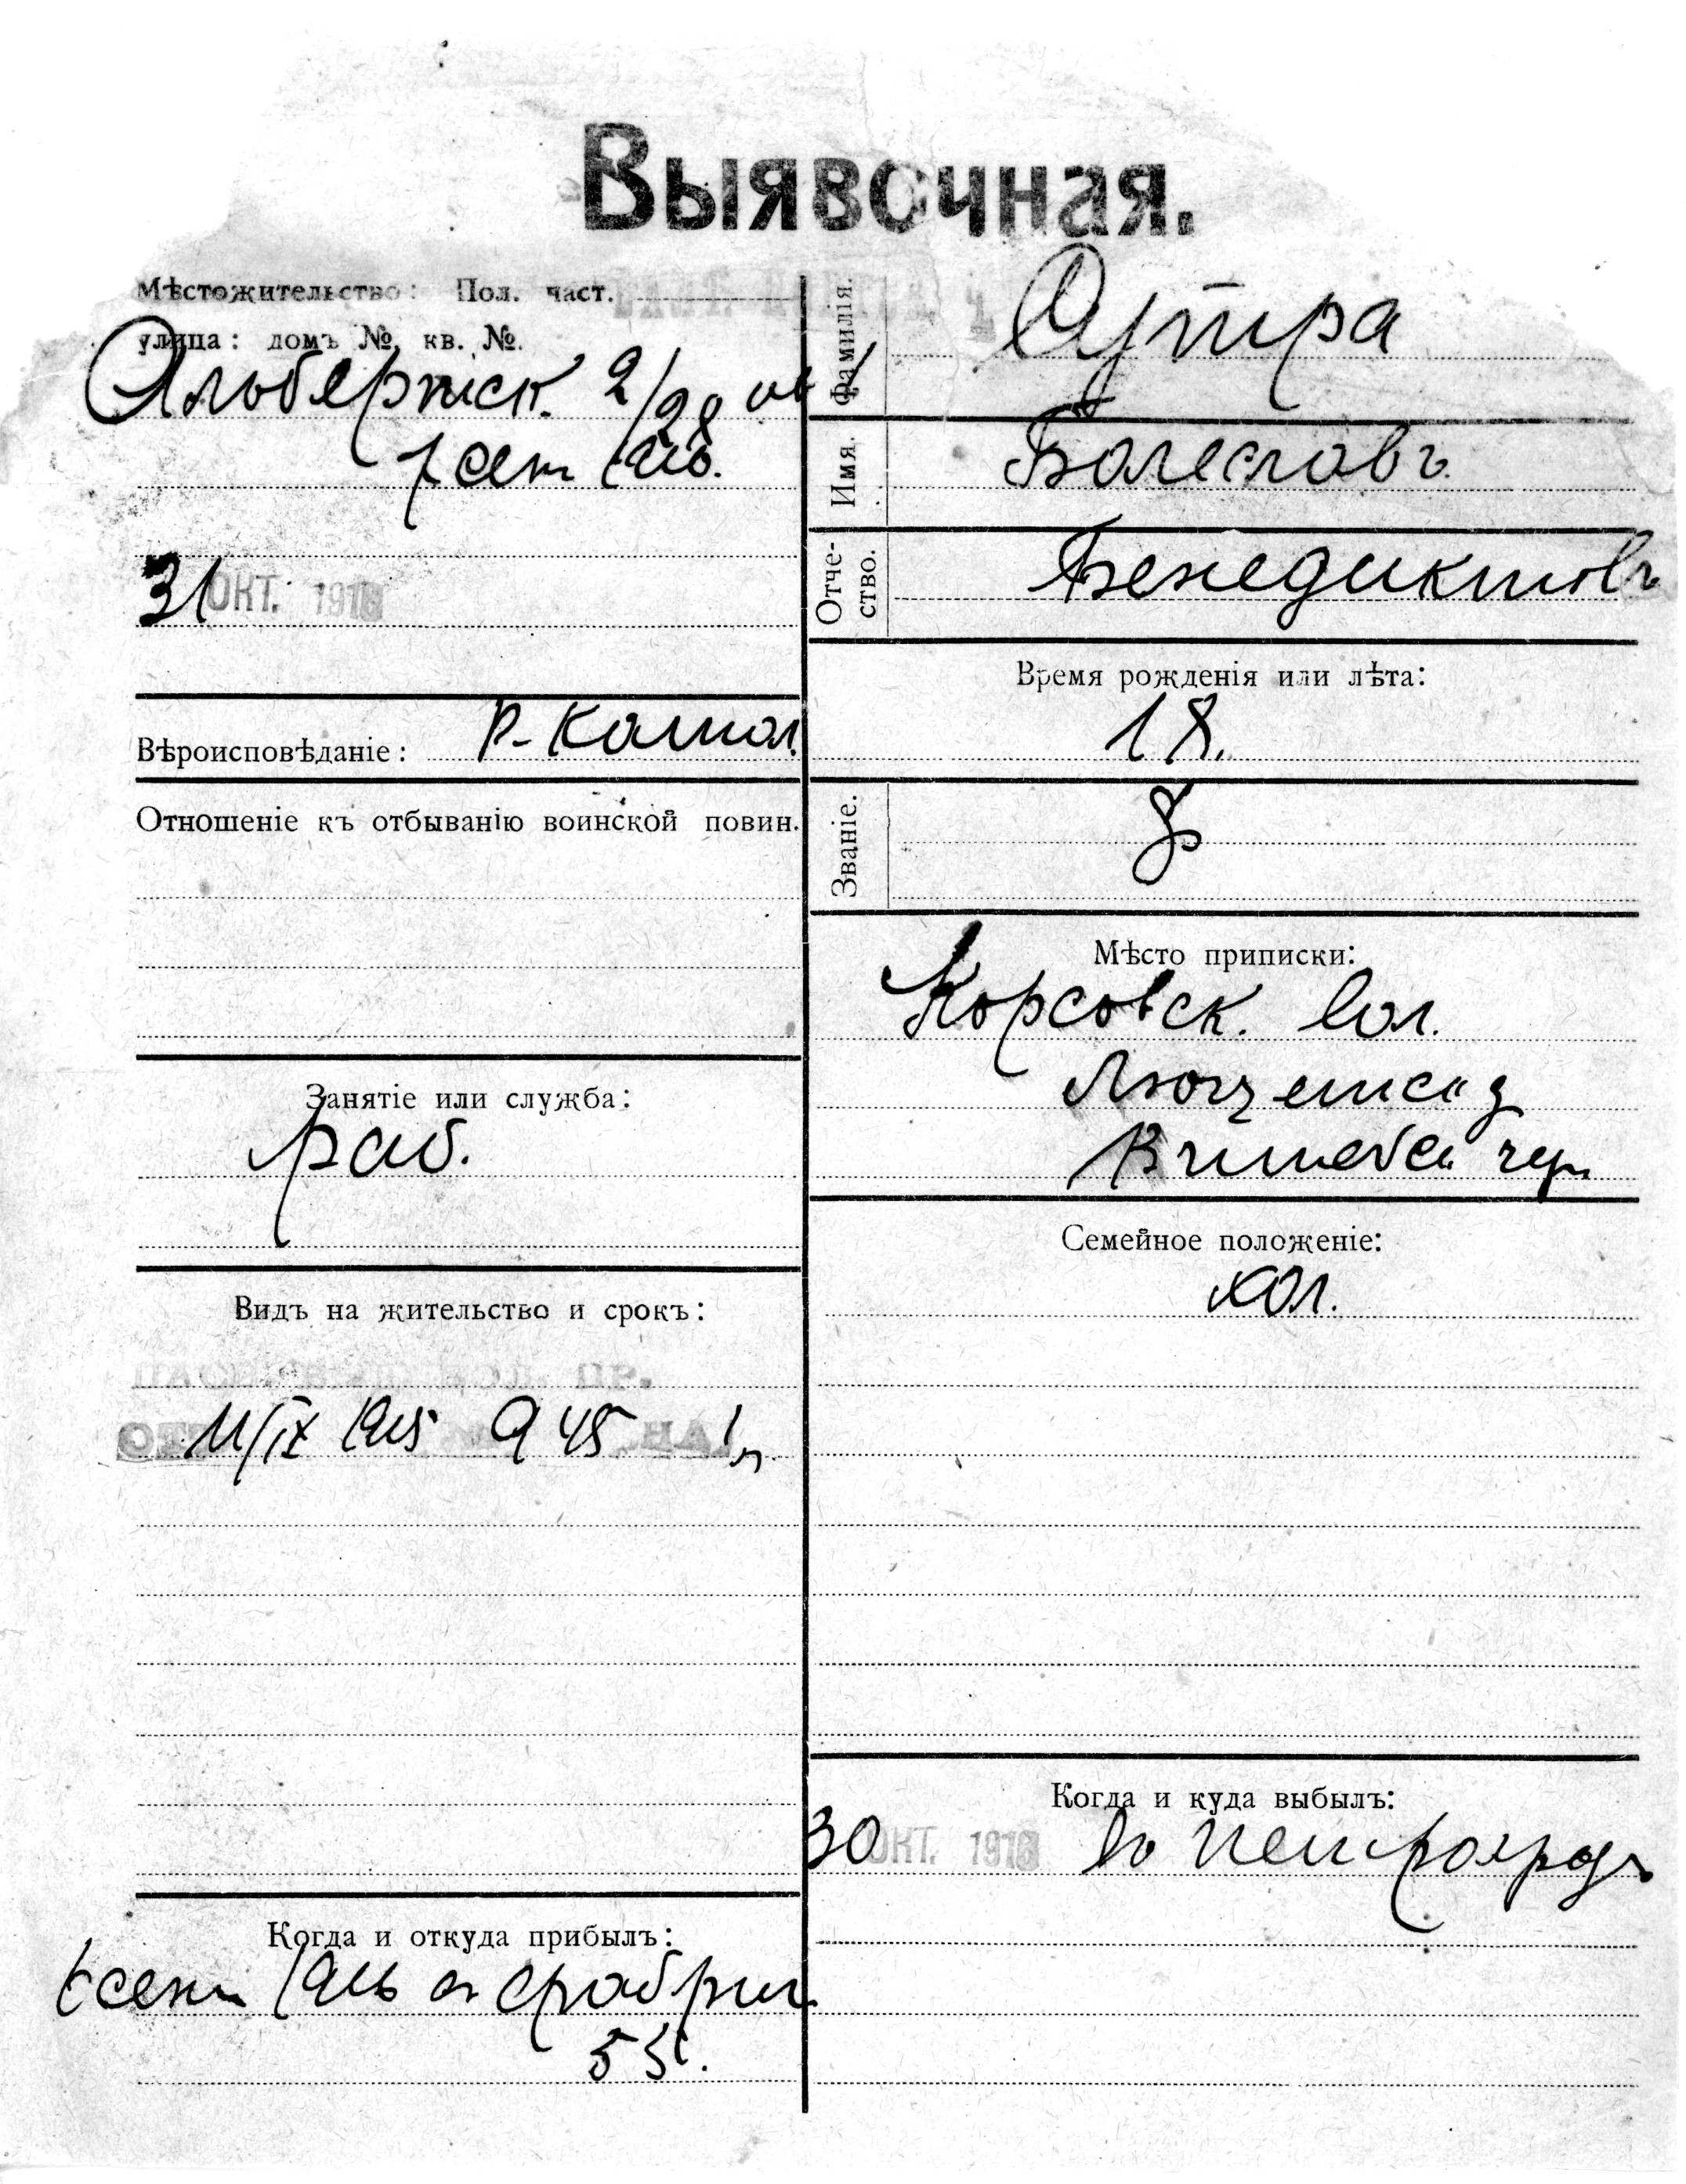 Выявочная.
Мѣстожительство: Пол. част.
улица: домъ №, кв. №.
Альбертск. 2/28
1 сен 1916.
31 ОКТ. 1916
Вѣроисповѣданіе: р-катол.
Отношеніе къ отбыванію воинской повин.
Занятіе или служба:
раб.
Видъ на жительство и срокъ:
11/IX 1915 945 1
Когда и откуда прибылъ:
1 сент 1916 с
55.
Фамилія. Аутра
Имя. Болеславъ
Отче-
ство. Бенедиктовъ
Время рожденія или лѣта:
18.
Званіе.
Мѣсто приписки:
Корсовск. вол.
Люценск у
Витебск губ
Семейное положеніе:
хол.
Когда и куда выбылъ:
30 ОКТ. 1916 въ Петроградъ